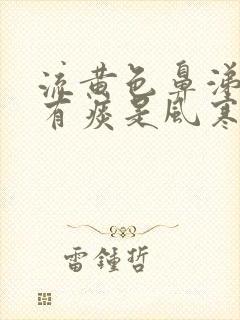 流黄色鼻涕
有痰是风寒
雷鍾哲